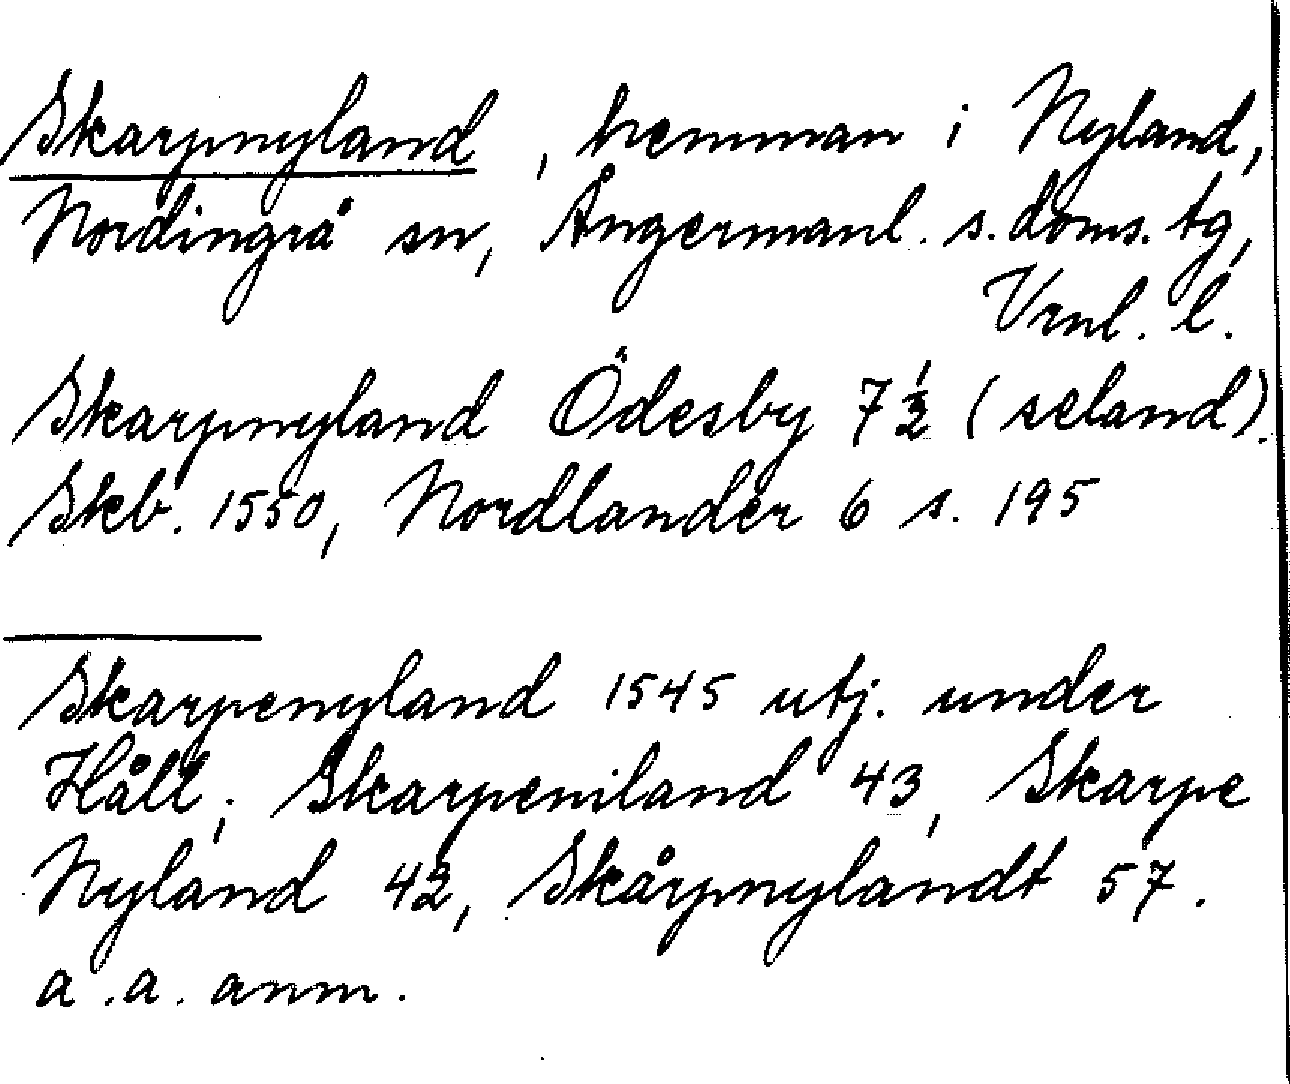 Skarpnyland, hemman i Nyland,
Nordingrå sn, Ångermanl. s. doms. tg,
Vrnl. l.
Skarpnyland Ödesby 7 1/2 (seland).
Skb. 1550, Nordlander 6 s. 195
Skarpenyland 1545 utj. under
Håll; Skarpeniland 43, Skarpe
Nyland 42, Skårpnylandt 57.
a.a. anm.